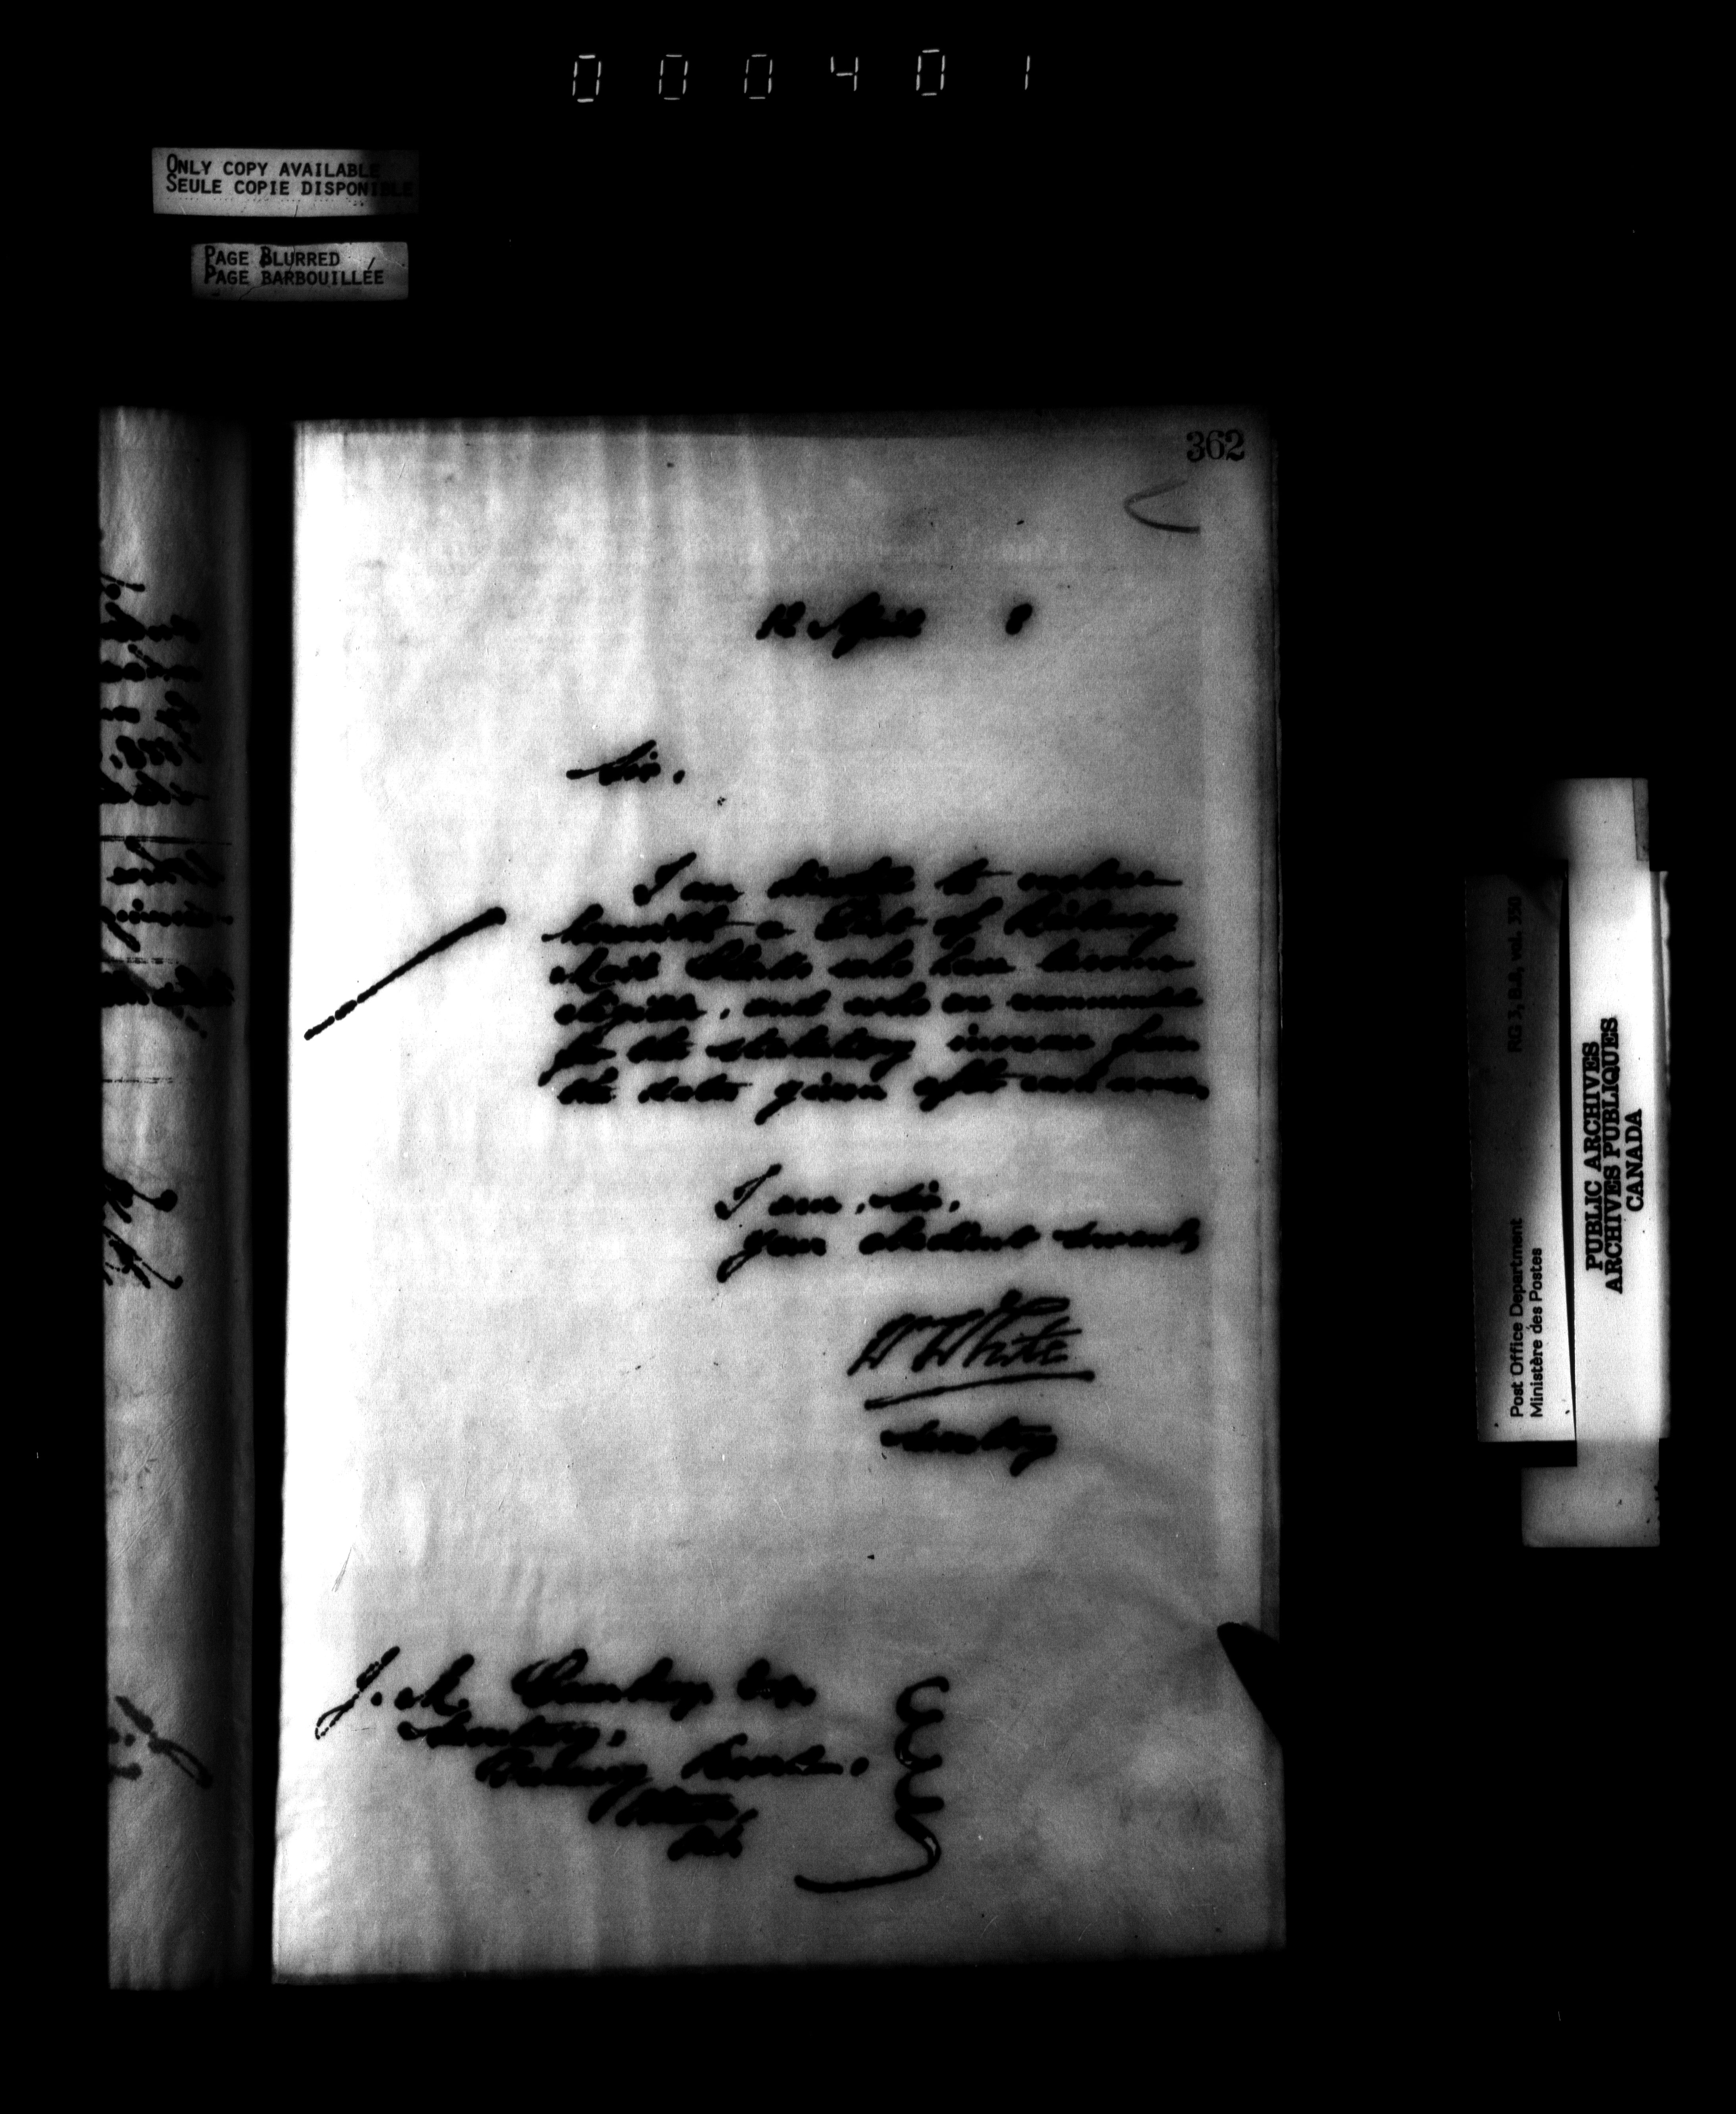 000401
ONLY COPY AVAILABLE
SEULE COPIE DISPONIBLE
PAGE BLURRED
PAGE BARBOUILLÉE
362
12 April 8
Sir,
I am directed to enclose
herewith a List of Railway
Mail Clerks who have become
eligible, and who are recommended
for the statutory increase from
the dates given after each name,
I am, Sir,
Your obedient servant,
W White
Secretary
J. M. Courtney Esq,
Secretary,
Treasury Board,
Ottawa,
RG 3, D.2, vol. 350
Post Office Department
Ministère des Postes
PUBLIC ARCHIVES
ARCHIVES PUBLIQUES
CANADA